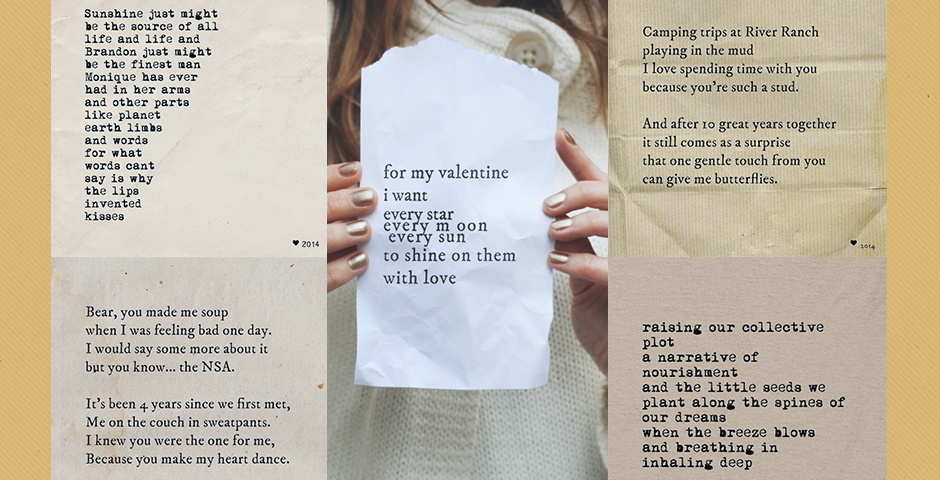 Sunshine just might
be the source of all
life and life and
Brandon just might
be the finest man
Monique has ever
had in her arms
and other parts
like planet
earth limbs
and words
for what
words cant
say is why
the lips
invented
kisses
♥ 2014
for my valentine
i want
every star
every m oon
every sun
to shine on them
with love
Camping trips at River Ranch
playing in the mud
I love spending time with you
because you're such a stud.
And after 10 great years together
it still comes as a surprise
that one gentle touch from you
can give me butterflies.
♥ 2014
Bear, you made me soup
when I was feeling bad one day.
I would say some more about it
but you know... the NSA.
It's been 4 years since we first met,
Me on the couch in sweatpants.
I knew you were the one for me,
Because you make my heart dance.
raising our collective
plot
a narrative of
nourishment
and the little seeds we
plant along the spines of
our dreams
when the breeze blows
and breathing in
inhaling deep